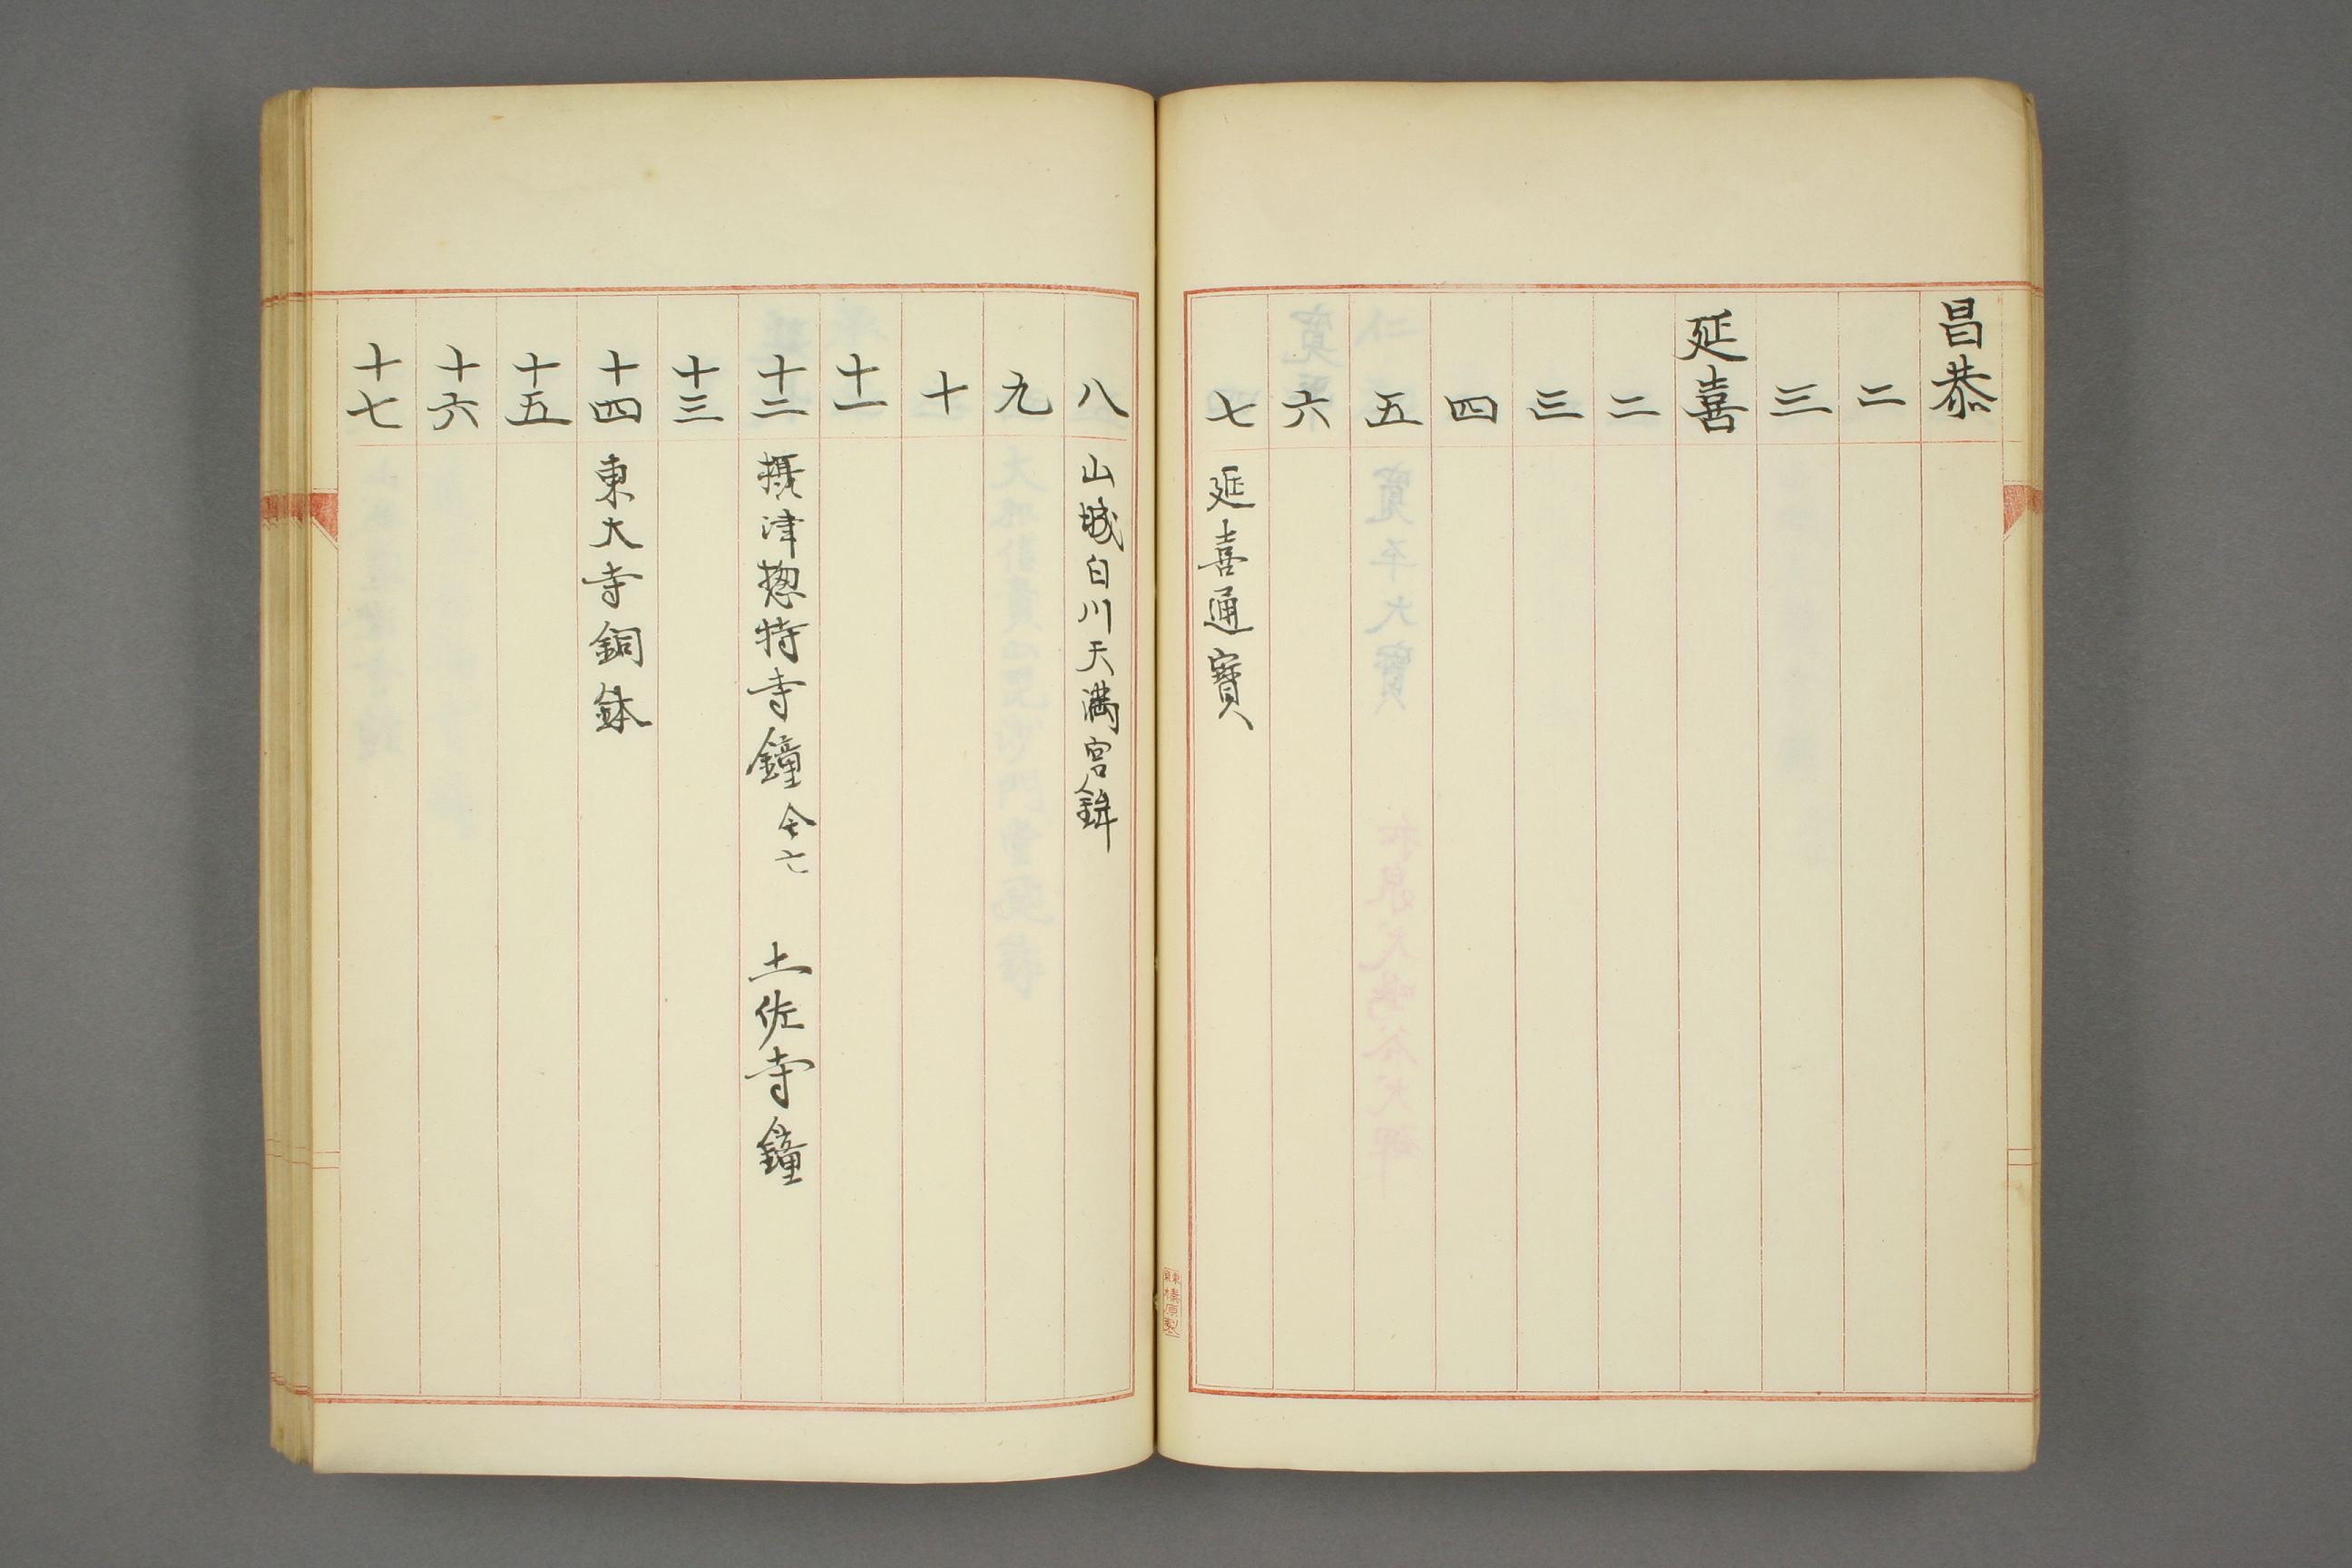 昌恭
二
三
延喜
二
三
四
五
六
七 延喜通寳
八 山城白川天満宮鉾
九
十
十一
十二 摂津惣持寺鐘 今亡 土佐寺鐘
十三
十四 東大寺銅鉢
十五
十六
十七
榛原製